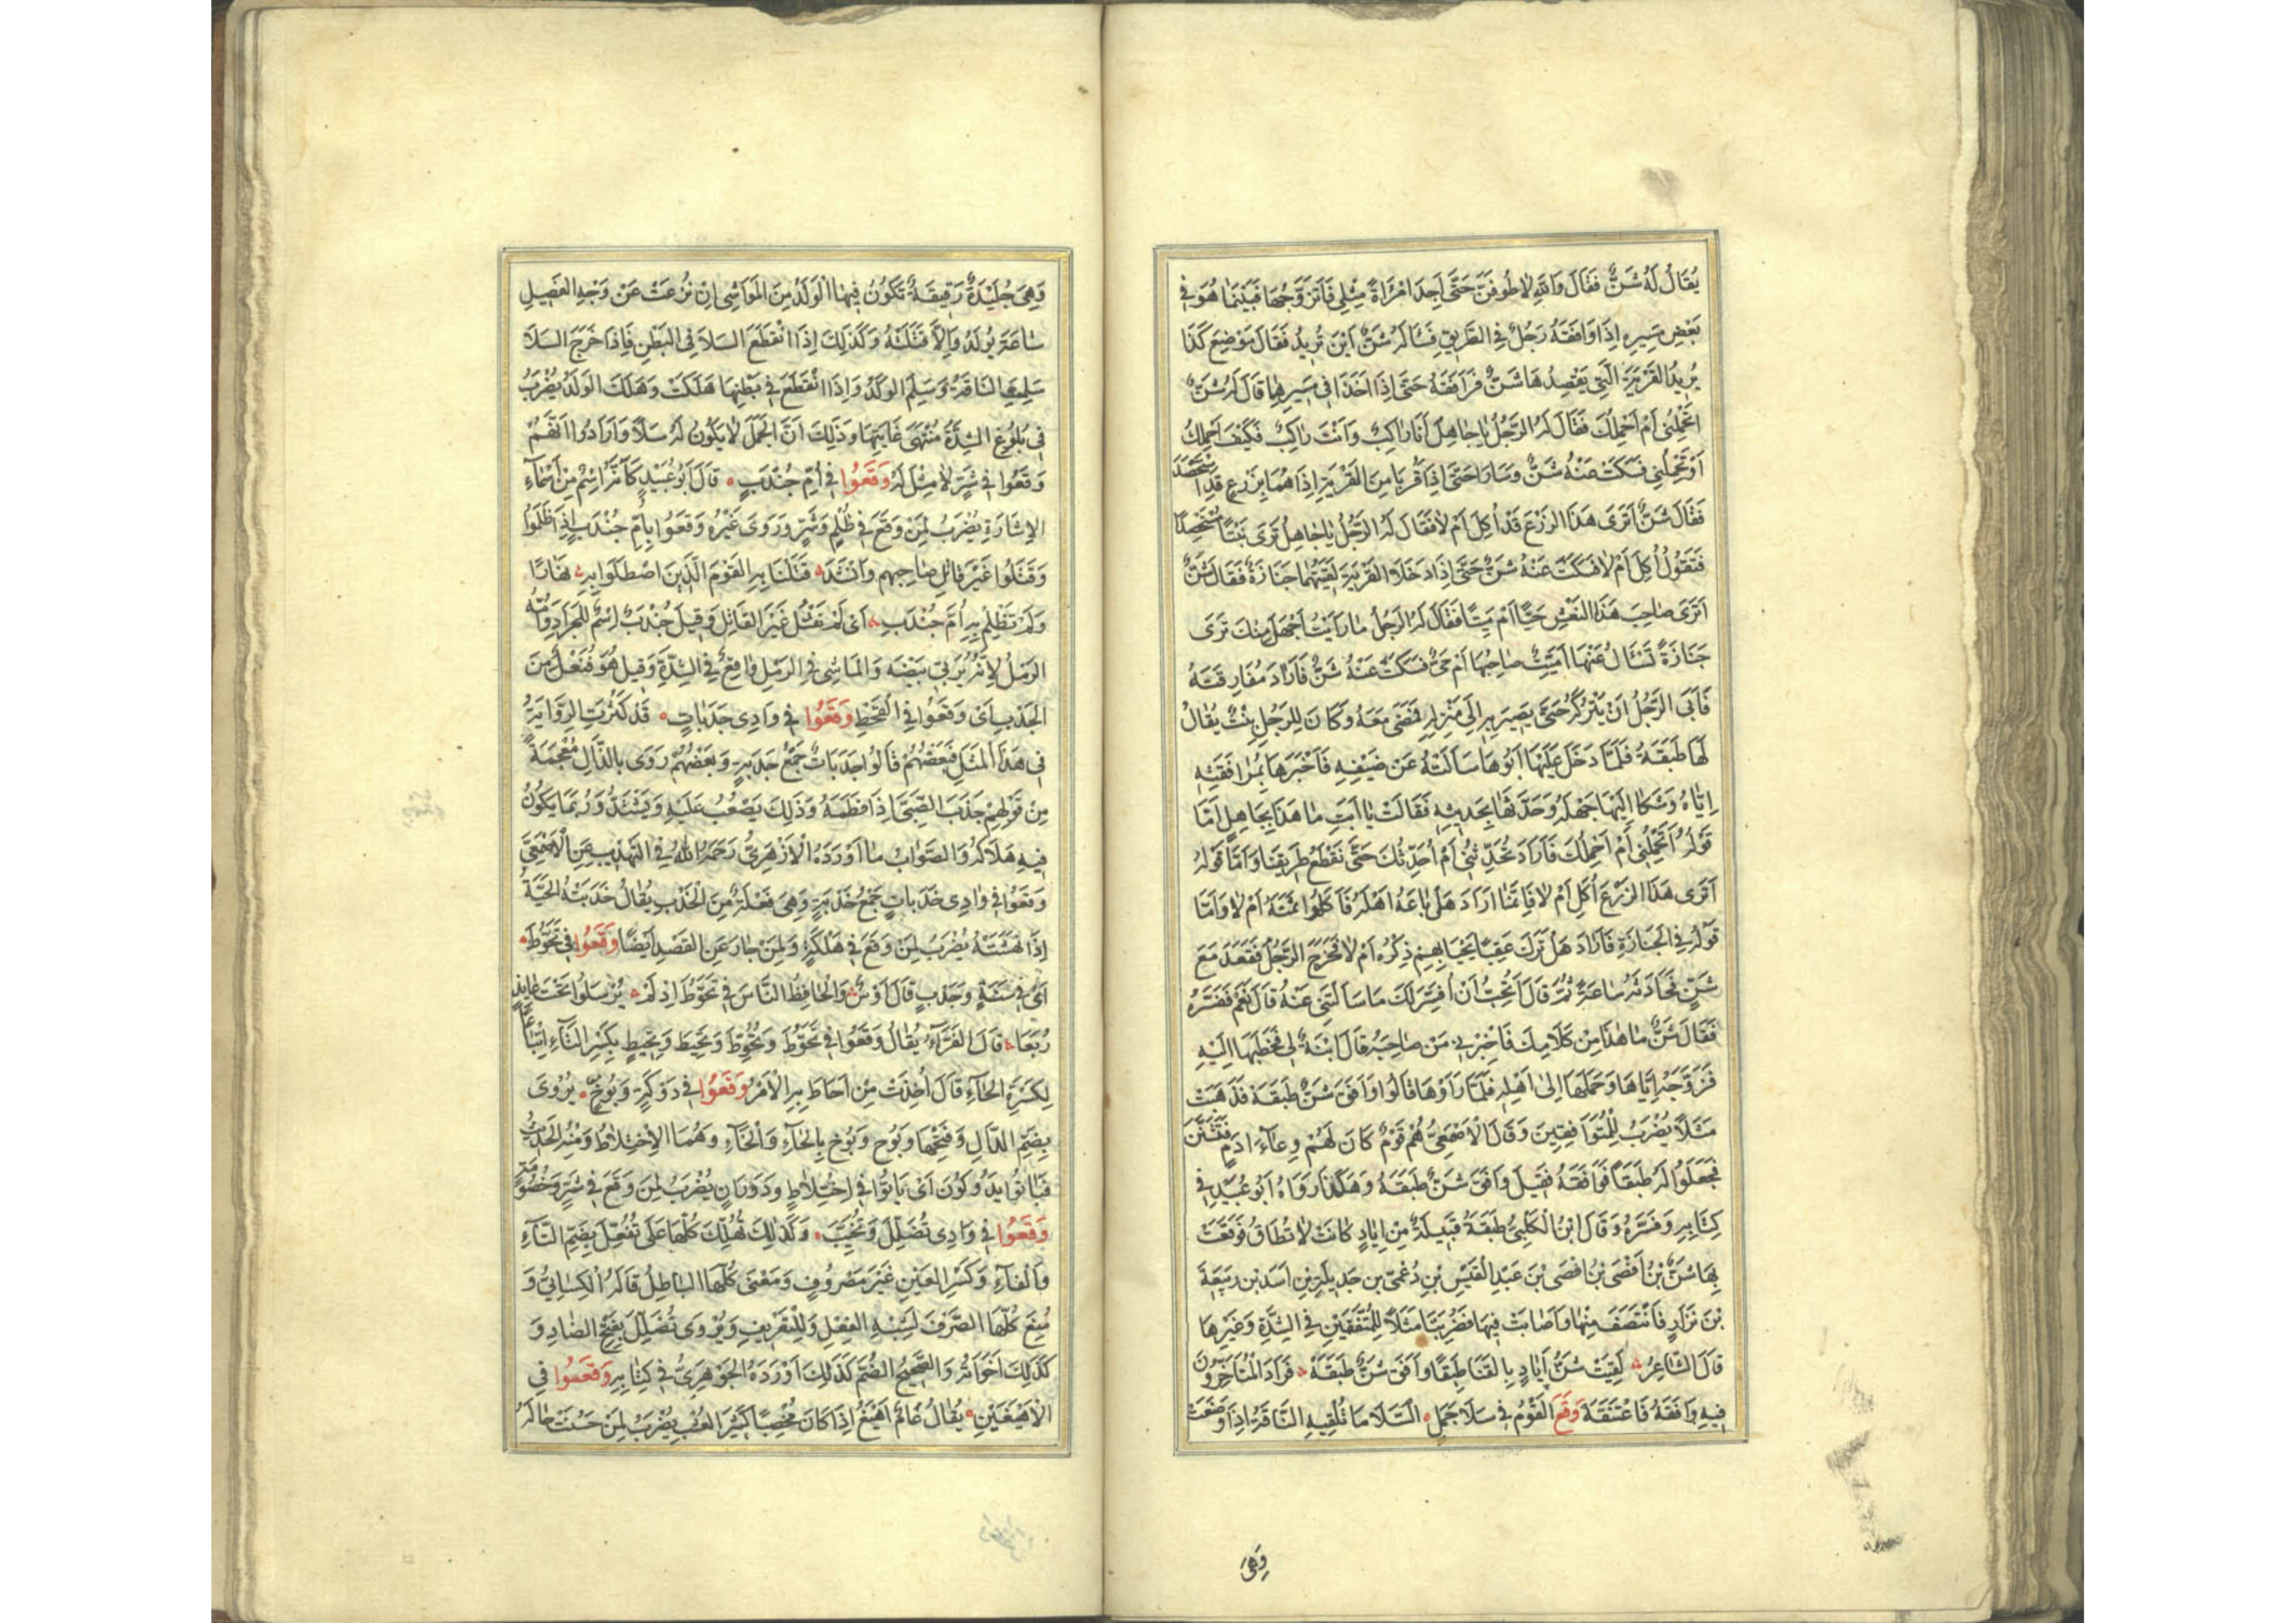 يُقَالُ لَهُ شَنٌّ فَقَالَ وَاللهِ لَاَطُوفَنَّ حَتَّى اَجِدَ امْرَاَةً مِثْلِى فَاَتَزَوَّجُهَا فَبَيْنَمَا هُوَ فِى
بَعْضِ مَسِيرِهِ اِذَا وَافَقَهُ رَجُلٌ فِى الطَّرِيقِ فَسَالَهُ شَنٌّ اَيْنَ تُرِيدُ فَقَالَ مَوْضِعَ كَذَا
يُرِيدُ القَرْيَةَ الَّتِى يَقْصِدُهَا شَنٌّ فَرَافَقَهُ حَتَّى اِذَا اَخَذَا فِى مَسِيرِهِمَا قَالَ لَهُ شَنٌّ
اَتَحْمِلُنِى اَمْ اَحْمِلُكَ فَقَالَ لَهُ الرَّجُلُ يَا جَاهِلُ اَنَا رَاكِبٌ وَاَنْتَ رَاكِبٌ فَكَيْفَ اَحْمِلُكَ
اَوْ تَحْمِلُنِى فَسَكَتَ عَنْهُ شَنٌّ وَسَارَا حَتَّى اِذَا قَرُبَا مِنَ القَرْيَةِ اِذَا هُمَا بِزَرْعٍ قَدِ اسْتَحْصَدَ
فَقَالَ شَنٌّ اَتَرَى هَذَا الزَّرْعَ قَدْ اُكِلَ اَمْ لَا فَقَالَ لَهُ الرَّجُلُ يَا جَاهِلُ تَرَى نَبْتًا مُسْتَحْصِدًا
فَتَقُولُ اُكِلَ اَمْ لَا فَسَكَتَ عَنْهُ شَنٌّ حَتَّى اِذَا دَخَلَا القَرْيَةَ لَقِيَتْهُمَا جَنَازَةٌ فَقَالَ شَنٌّ
اَتَرَى صَاحِبَ هَذَا النَّعْشِ حَيًّا اَمْ مَيِّتًا فَقَالَ لَهُ الرَّجُلُ مَا رَاَيْتُ اَجْهَلَ مِنْكَ تَرَى
جَنَازَةً تَسْئَالُ عَنْهَا اَمَيِّتٌ صَاحِبُهَا اَمْ حَىٌّ فَسَكَتَ عَنْهُ شَنٌّ فَاَرَادَ مُفَارِقَتَهُ
فَاَبَى الرَّجُلُ اَنْ يَتْرُكَهُ حَتَّى يَصِيرَ بِهِ اِلَى مَنْزِلِهِ فَمَضَى مَعَهُ وَكَانَ لِلرَّجُلِ بِنْتٌ يُقَالُ
لَهَا طَبَقَةُ فَلَمَّا دَخَلَ عَلَيْهَا اَبُوهَا سَاَلَتْهُ عَنْ ضَيْفِهِ فَاَخْبَرَهَا بِمُرَافَقَتِهِ
اِيَّاهُ وَشَكَا اِلَيْهَا جَهْلَهُ وَحَدَّثَهَا بِحَدِيثِهِ فَقَالَتْ يَا اَبَتِ مَا هَذَا بِجَاهِلٍ اَمَّا
قَوْلُهُ اَتَحْمِلُنِى اَمْ اَحْمِلُكَ فَاَرَادَ تُحَدِّثُنِى اَمْ اُحَدِّثُكَ حَتَّى نَقْطَعَ طَرِيقَنَا وَاَمَّا قَوْلُهُ
اَتَرَى هَذَا الزَّرْعَ اُكِلَ اَمْ لَا فَاِنَّمَا اَرَادَ هَلْ بَاعَهُ اَهْلُهُ فَاَكَلُوا ثَمَنَهُ اَمْ لَا وَاَمَّا
قَوْلُهُ فِى الجَنَازَةِ فَاَرَادَ هَلْ تَرَكَ عَقِبًا يَحْيَا بِهِمْ ذِكْرُهُ اَمْ لَا فَخَرَجَ الرَّجُلُ فَقَعَدَ مَعَ
شَنٍّ فَحَادَثَهُ سَاعَةً ثُمَّ قَالَ اَتُحِبُّ اَنْ اُفَسِّرَ لَكَ مَا سَاَلْتَنِى عَنْهُ قَالَ نَعَمْ فَفَسَّرَهُ
فَقَالَ شَنٌّ مَا هَذَا مِنْ كَلَامِكَ فَاَخْبِرْنِى مَنْ صَاحِبُهُ قَالَ ابْنَةٌ لِى فَخَطَبَهَا اِلَيْهِ
فَزَوَّجَهُ اِيَّاهَا وَحَمَلَهَا اِلَى اَهْلِهِ فَلَمَّا رَاَوْهَا قَالُوا وَافَقَ شَنٌّ طَبَقَةَ فَذَهَبَتْ
مَثَلًا يُضْرَبُ لِلْمُتَوَافِقِينَ وَقَالَ الْاَصْمَعِىُّ هُمْ قَوْمٌ كَانَ لَهُمْ وِعَاءُ اَدَمٍ فَتَشَنَّنَ
فَجَعَلُوا لَهُ طَبَقًا فَوَافَقَهُ فَقِيلَ وَافَقَ شَنٌّ طَبَقَهُ وَهَكَذَا رَوَاهُ اَبُو عُبَيْدٍ فِى
كِتَابِهِ وَفَسَّرَهُ وَقَالَ ابْنُ الْكَلْبِىِّ طَبَقَةُ قَبِيلَةٌ مِنْ اِيَادٍ كَانَتْ لَا تُطَاقُ فَوَقَعَتْ
بِهَا شَنُّ بْنُ اَفْصَى بْنُ اَفْصَى بْنَ عَبْدِ القَيْسِ بْنِ دُعْمِىِّ بن جَدِيلَةَ بْنِ اَسَدِ بْن رَبِيعَةَ
بْنَ نَزَارٍ فَانْتَصَفَ مِنْهَا وَاَصَابَتْ فِيهَا فَضُرِبَتَا مَثَلًا لِلْمُتَّفِقَيْنِ فِى الشِّدَّةِ وَغَيْرِهَا
قَالَ الشَّاعِرُ لَقِيَتْ شَنٌّ اِيَادٍ بِالقَنَا طَبَقًا وَافَقَ شَنٌّ طَبَقَهْ فَزَادَ المُتَاَخِّرُونَ
فِيهِ وَافَقَهُ فَاعْتَنَقَهْ وَقَعَ القَوْمُ فِى سَلَا جَمَلٍ السَّلَا مَا تُلْقِيهِ النَّاقَةُ اِذَا وَضَعَتْ
وَهِىَ
وَهِىَ جُلَيْدَةٌ رَقِيقَةٌ تَكُونُ فِيهَا الْوَلَدُ مِنَ المَوَاشِى اِنْ نُزِعَتْ عَنْ وَجْهِ الفَصِيلِ
سَاعَةَ يُولَدُ وَاِلَّا قَتَلَتْهُ وَكَذَلِكَ اِذَا انْقَطَعَ السَّلَا فِى البَطْنِ فَاِذَا خَرَجَ السَّلَا
سَلِمَتِ النَّاقَةُ وَسَلِمَ الوَلَدُ وَاِذَا انْقَطَعَ فِى بَطْنِهَا هَلَكَتْ وَهَلَكَ الوَلَدُ يُضْرَبُ
فِى بُلُوغِ الشِّدَّةِ مُنْتَهَى غَايَتِهَا وَذَلِكَ اَنَّ الجَمَلَ لَا يَكُونُ لَهُ سَلًا وَاَرَادُوا اَنَّهُمْ
وَقَعُوا فِى شَرٍّ لَا مِثْلَ لَهُ وَقَعُوا فِى اُمِّ جُنْدَبٍ قَالَ اَبُو عُبَيْدٍ كَاَنَّهُ اِسْمٌ مِنْ اَسْمَاءِ
الاِسَارَةِ يُضْرَبُ لِمَنْ وَقَعَ فِى ظُلْمٍ وَشَرٍّ وَرَوَى غَيْرُهُ وَقَعُوا بِاُمِّ جُنْدَبٍ اِذَا ظَلَمُوا
وَقَتَلُوا غَيْرَ قَاتِلِ صَاحِبِهِم وَاَنْشَدَ قَتَلْنَا بِهِ القَوْمَ الَّذِينَ اصْطَلَوا بِهِ نَهَارًا
وَلَمْ نَظْلِمْ بِهِ اُمَّ جُنْدَبِ اَى لَمْ نَقْتُلْ غَيْرَ القَاتِلِ وَقِيلَ جُنْدَبٌ اِسْمٌ لِلجَرَادِ وَاُمُّهُ
الرَّمْلُ لِاَنَّهُ يُرَبِّى بَيْضَهُ وَالمَاشِى فِى الرَّمْلِ وَاقِعٌ فِى الشِّدَّةِ وَقِيلَ هُوَ فُنْعَلٌ مِنَ
الجَدْبِ اَىْ وَقَعُوا فِى القَحْطِ وَقَعُوا فِى وَادِى جَدَبَاتٍ قَدْ كَثُرَتِ الرِّوَايَةُ
فِى هَذَا المَثَلِ فَبَعْضُهُمْ قَالُوا جَدَبَاتٌ جَمْعُ جَدْبَةٍ وَبَعْضُهُمْ رَوَى بِالذَّالِ مُعْجَمَةً
مِنْ قَوْلِهِمْ جَذَبَ الصَّبِىَّ اِذَا فَطَمَهُ وَذَلِكَ يَصْعُبُ عَلَيْهِ وَيَشْتَدُّ وَرُبَمَا يَكُونُ
فِيهِ هَلَاكُهُ وَالصَّوَابُ مَا اَوْرَدَهُ الْاَزْهَرِىُّ رَحِمَهُ اللهُ فِى التَّهْذِيبِ عَنِ الْاَصْمَعِىِّ
وَقَعُوا فِى وَادِى خَدَبَاتٍ جَمْعُ خَدْبَةٍ وَهِىَ فَعْلَةٌ مِنَ الْخَدْبِ يُقَالُ خَدَبَتْهُ الحَيَّةُ
اِذَا نَهَشَتْهُ يُضْرَبُ لِمَنْ وَقَعَ فِى هَلَكَةٍ وَلِمَنْ جَارَ عَنِ القَصْدِ اَيْضًا وَقَعُوا فِى تَحُوطَ
اَىْ فِى سَنَةٍ وَجَدْبٍ قَالَ اَوْسٌ وَالْحَافِظُ النَّاسَ فِى تَحُوطَ اِذَا لَمْ يُرْسِلُوا تَحْتَ عَايِذٍ
رُبَعَا قَالَ الفَرَّاءُ يُقَالُ وَقَعُوا فِى تَحُوطَ وَتُحُوِّطَ وَتَحِيطَ وَتِحِيطَ بِكَسْرِ التَّاءِ اِتْبَاعًا
لِكَسْرَةِ الحَاءِ قَالَ اُخِذَتْ مِنْ اَحَاطَ بِهِ الْاَمْرُ وَقَعُوا فِى دَوْكَةٍ وَبُوخٍ يُرْوَى
بِضَمِّ الدَّالِ وَفَتْحِهَا وَبُوحٍ وَبُوخٍ بِالحَاءِ وَالْخَاءِ وَهُمَا الاِخْتِلَاطُ وَمِنْهُ الحَدِيثُ
فَبَاتُوا يَدُوكُونَ اَىْ بَاتُوا فِى اخْتِلَاطٍ وَدَوَرَانٍ يُضْرَبُ لِمَنْ وَقَعَ فِى شَرٍّ وَخُصُومَةٍ
وَقَعُوا فِى وَادِى تُضُلِّلَ وَتُخُيِّبَ وَكَذَلِكَ تُهُلِّكَ كُلُّهَا عَلَى تُفُعِّلَ بِضَمِّ التَّاءِ
وَالفَاءِ وَكَسْرِ العَيْنِ غَيْرَ مَصْرُوفٍ وَمَعْنَى كُلِّهَا البَاطِلُ قَالَهُ الْكِسَائِىُّ وَ
مُنِعَ كُلُّهَا الصَّرْفَ لِشَبَهِ الفِعْلِ وَلِلتَّعْرِيفِ وَيُرْوَى تُضَلِّلَ بِفَتْحِ الضَّادِ وَ
كَذَلِكَ اَخَوَاتُهُ وَالصَّحِيحُ الضَّمُّ كَذَلِكَ اَوْرَدَهُ الجَوْهَرِىُّ فِى كِتَابِهِ وَقَعُوا فِى
الْاَهْيَغَيْنِ يُقَالُ عَامٌ اَهْيَغُ اِذَا كَانَ مُخْصِبًا كَثِيرَ العُشْبِ يُضْرَبُ لِمَنْ حَسُنَتْ حَالُهُ